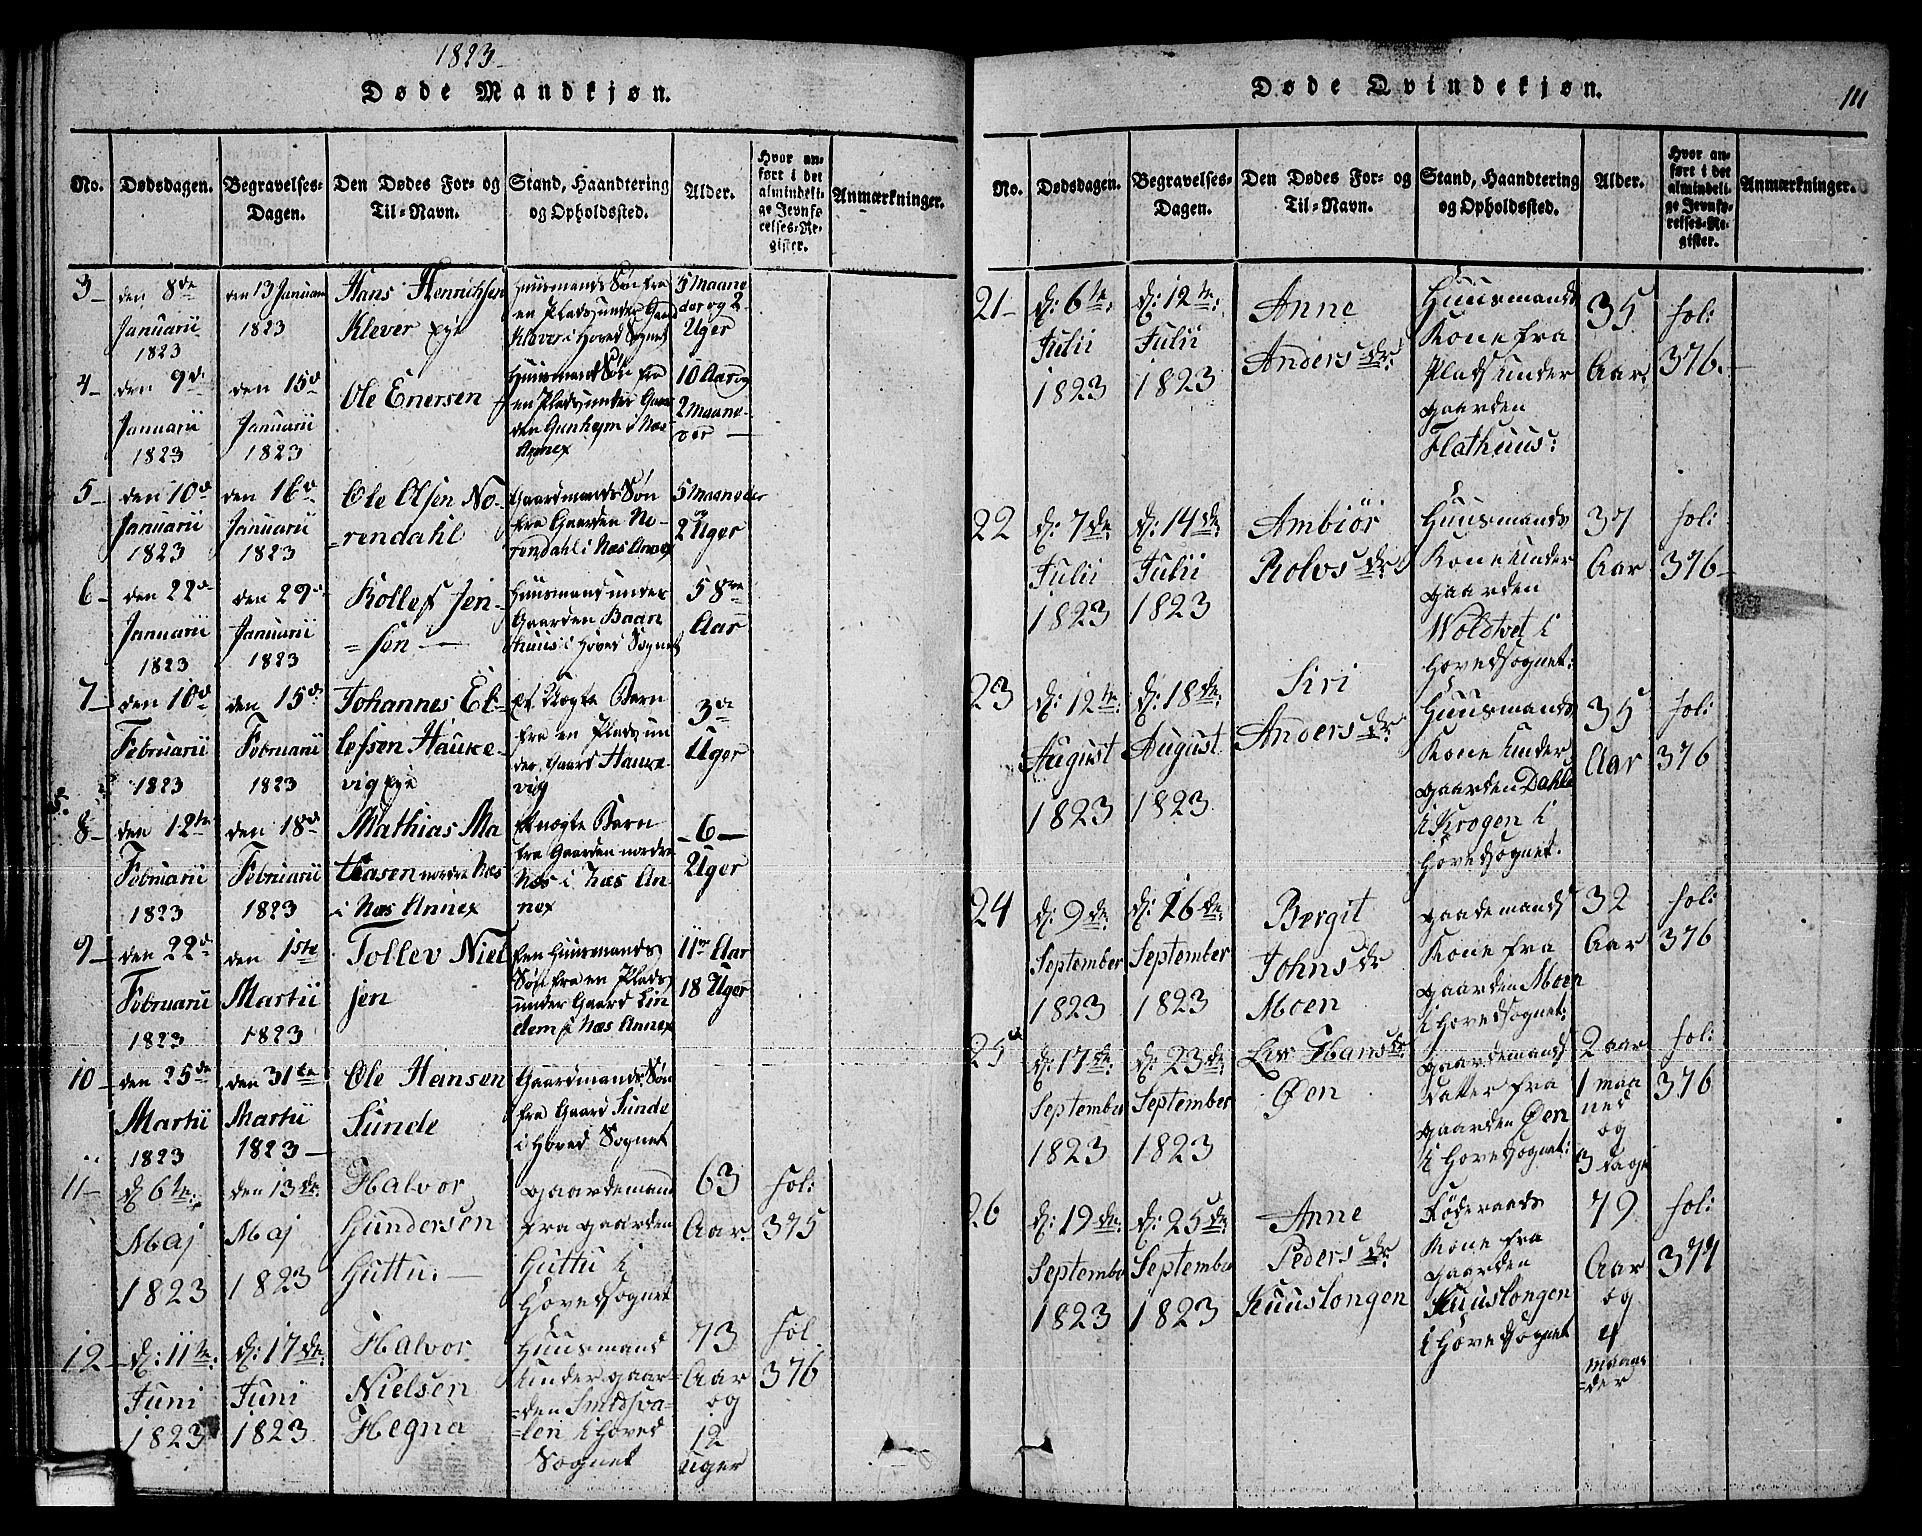 1823
Døde Mandkjøn.
No.
Dødsdagen.
Begravelses-
Dagen.
Den Dødes For- og
Til-Navn.
Stand, Haandtering
og Opholdssted.
Alder.
Hvor an-
ført i det
almindeli-
ge Jevnfø-
relses-Re-
gister.
Anmærkninger.
3
den 8de
Januarii
1823
den 13 Januarii
1823
Hans Henrichsen
Klever eje
Huusmands Søn fra
en Plads under Gaard
Klever i Hoved Sognet
5 Maane
der og 2
Uger
4
den 9de
Januarii
1823
den 15d
Januarii
1823
Ole Enersen
Huusmand Søn fra
en Plads under Gaar
den Gunheim i Næs
Annex
10 Aar og
2 Maane-
der
5
den 10d
Januarii
1823
den 16d
Januarii
1823
Ole Olsen No-
rendahl
Gaardmands Søn
fra Gaarden No-
rendahl i Næs Annex
5 Maaneder
og
2 Uger
6
den 22d
Januarii
1823
den 29d
Januarii
1823
Kollef Jen-
sen
Huusmand under
Gaarden Baan
huus i Hoved Sognet
58de
Aar
7
den 10d
Februarii
1823
den 15d
Februarii
1823
Johannes El-
lefsen Hauke-
vig eje
et Ægte Barn
fra en Plads un
der Gaard Hauke-
vig
3de
Uger
8
den 12te
Februarii
1823
den 18d
Februarii
1823
Mathias Ma
thasen nordre Næs
i Næs Annex
et ægte Barn
fra Gaarden nordre
Næs i Næs An-
nex
6
Uger
9
den 22d
Februarii
1823
den 1ste
Martii
1823
Tollev Niel
sen
En Huusmands
Søn fra en Plads
under Gaard Lin
dem i Næs Annex
11te Aar
18 Uger
10
den 25de
Martii
1823
den 31te
Martii
1823
Ole Hansen
Sunde
Gaardmands Søn
fra Gaard Sunde
i Hoved Sognet
11
d: 6te
Maj
1823
den 13de
Maj
1823
Halvor
Gundersen
Guttu.
gaardemand
fra gaarden
Guttu i
Hovedsognet
63
Aar
fol:
375
12
d: 11te
Juni
1823
d: 17de
Juni
1823
Halvor
Nielsen
Hegna
Huusmand
under gaar
den Smedsva
len i Hoved
Sognet
73
Aar
og
12
Uger
fol
376
Døde Qvindekjøn.
111
No.
Dødsdagen.
Begravelses-
Dagen.
Den Dødes For- og
Til-Navn.
Stand, Haandtering
og Opholdssted.
Alder.
Hvor an-
ført i det
almindeli-
ge Jevnfø-
relses-Re-
gister.
Anmærkninger.
21
d: 6te
Julii
1823
d: 12te
Julii
1823
Anne
Anders dr:
Huusmands
Kone fra
Plads under
gaarden
Flathuus:
35
Aar
fol:
376.
22
d: 7de
Julii
1823
d: 14de
Julii
1823
Ambiör
Rolvs dr:
Huusmands
Kone under
gaarden
Woldtvet i
Hovedsognet:
37
Aar
fol:
376
23
d: 12te
August
1823
d: 18de
August
1823
Siri
Anders dr:
Huusmands
Kone under
gaarden Dahle
i Krogen i
Hovedsognet.
35
Aar
fol:
376
24
d: 9de
September
1823
d: 16de
September
1823
Bergit
Johns dr
Moen
gaardemands
Kone fra
gaarden Moen
i Hovedsognet:
32
Aar
fol:
376
25
d: 17de
September
1823
d: 23de
September
1823
Liv Hans dr
Øen
gaardemands
Datter fra
gaarden Øen
i Hovedsognet:
2 aar
1 maa
ned
og
3 dage
fol:
376
26
d: 19de
September
1823
d: 25de
September
1823
Anne
Peders dr
Kuuslongen
Föderaads
Kone fra
gaarden
Kuuslongen
i Hovedsognet
79
Aar
og
4
maane
der
fol:
377